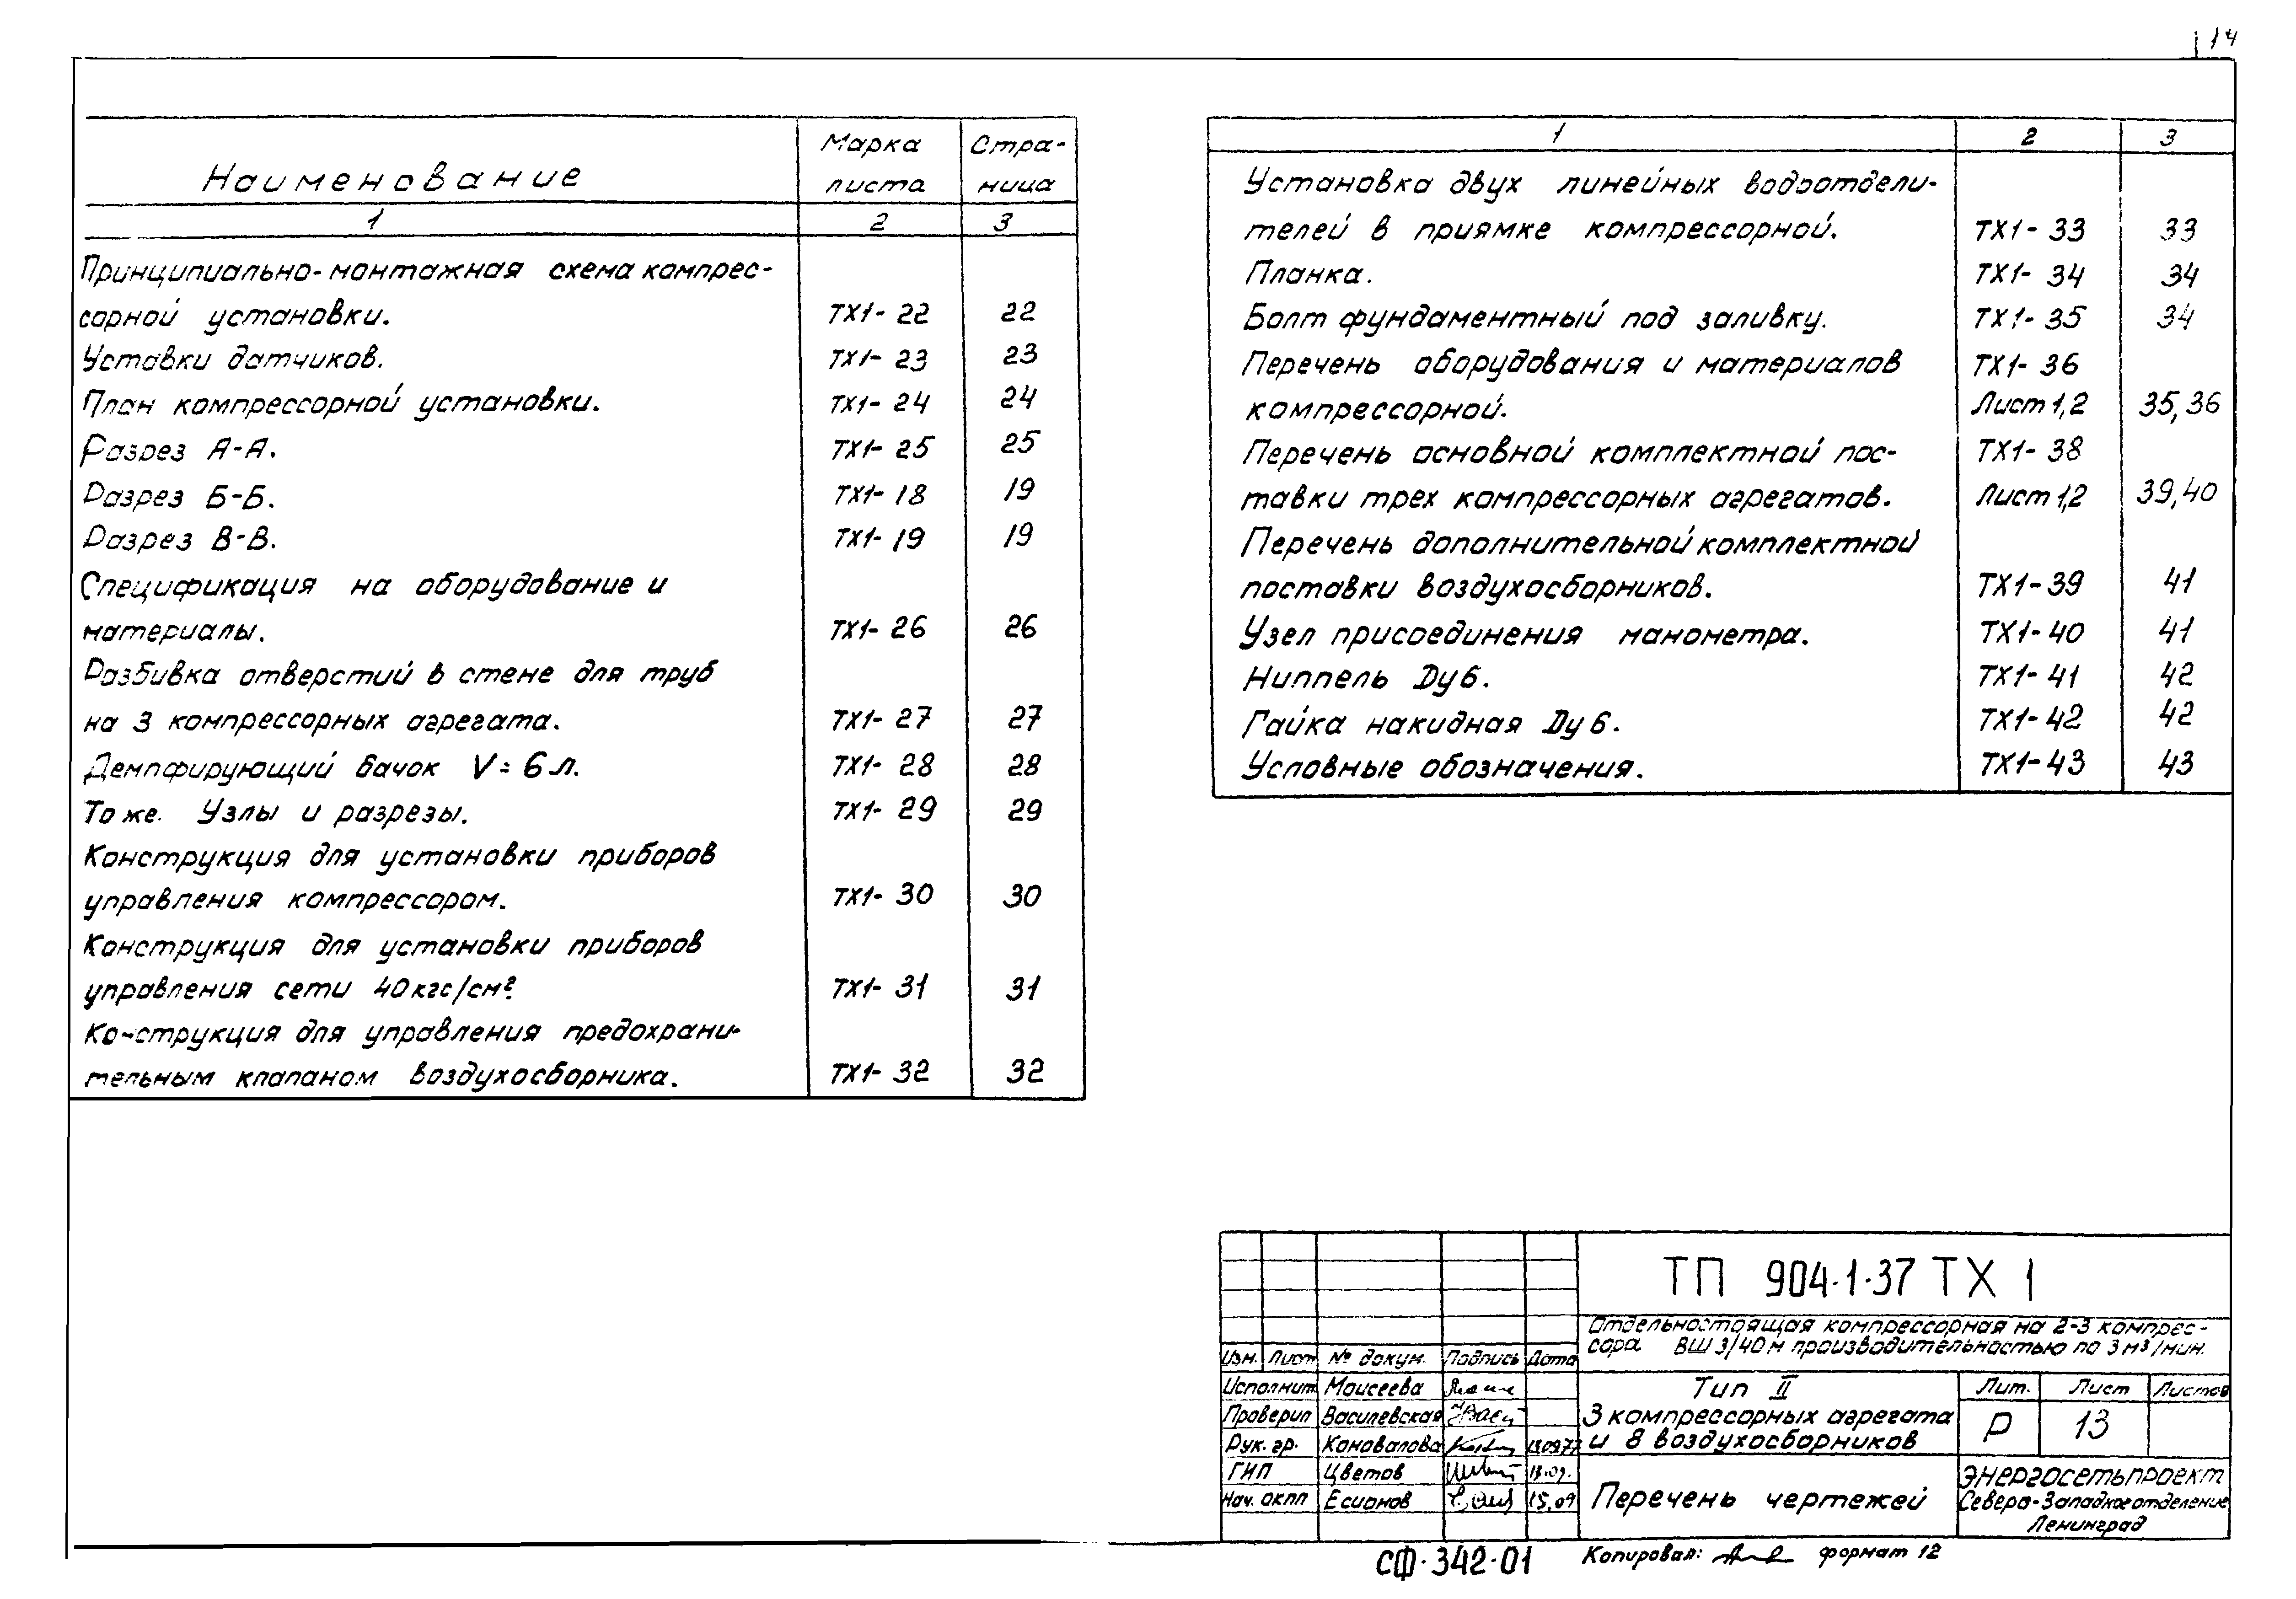 14
Наименование
Марка листа
Стра-ница
1 2 3
Принципиально-монтажная схема компрес-
сорной установки. ТХ1-22 22
Уставки датчиков. ТХ1-23 23
План компрессорной установки. ТХ1-24 24
Разрез А-А. ТХ1-25 25
Разрез Б-Б. ТХ1-18 19
Разрез В-В. ТХ1-19 19
Спецификация на оборудование и
материалы. ТХ1-26 26
Разбивка отверстий в стене для труб
на 3 компрессорных агрегата. ТХ1-27 27
Демпфирующий бачок V=6л. ТХ1-28 28
То же. Узлы и разрезы. ТХ1-29 29
Конструкция для установки приборов
управления компрессором. ТХ1-30 30
Конструкция для установки приборов
управления сети 40кгс/см². ТХ1-31 31
Конструкция для управления предохрани-
тельным клапаном воздухосборника. ТХ1-32 32
1 2 3
Установка двух линейных водоотдели-
телей в приямке компрессорной. ТХ1-33 33
Планка. ТХ1-34 34
Болт фундаментный под заливку. ТХ1-35 34
Перечень оборудования и материалов ТХ1-36
компрессорной. Лист 1,2 35,36
Перечень основной комплектной пос- ТХ1-38
тавки трех компрессорных агрегатов. Лист 1,2 39,40
Перечень дополнительной комплектной
поставки воздухосборников. ТХ1-39 41
Узел присоединения манометра. ТХ1-40 41
Ниппель Ду6. ТХ1-41 42
Гайка накидная Ду6. ТХ1-42 42
Условные обозначения. ТХ1-43 43
ТП 904-1-37 ТХ 1
Отдельностоящая компрессорная на 2-3 компрес-
сора ВШ 3/40м производительностью по 3 м³/мин.
Изм. Лист № докум. Подпись Дата
Исполнит Моисеева
Проверил Василевская
Рук. гр. Коновалова 13.09.77
ГИП Цветов 13.09.
Нач. ОКПП Есионов 15.09
Тип II
3 компрессорных агрегата
и 8 воздухосборников
Лит. Лист Листов
Р 13
Перечень чертежей
ЭНЕРГОСЕТЬПРОЕКТ
Северо-Западное отделение
Ленинград
СФ-342-01
Копировал: формат 12